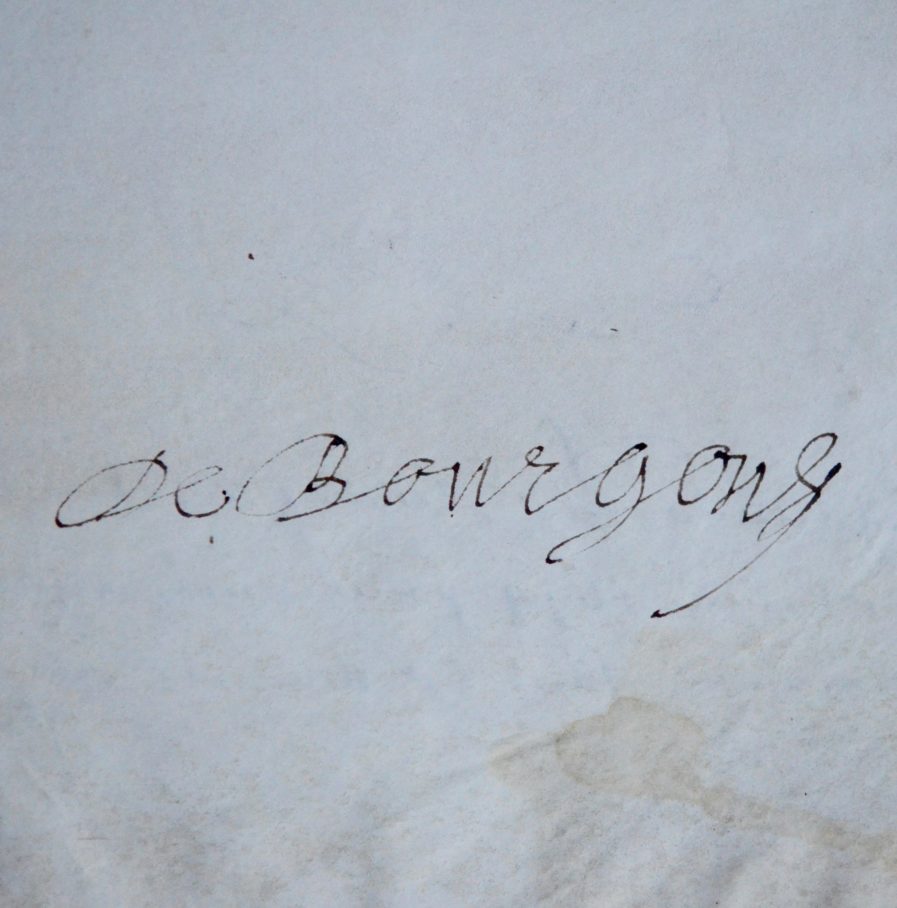 De Bourgong